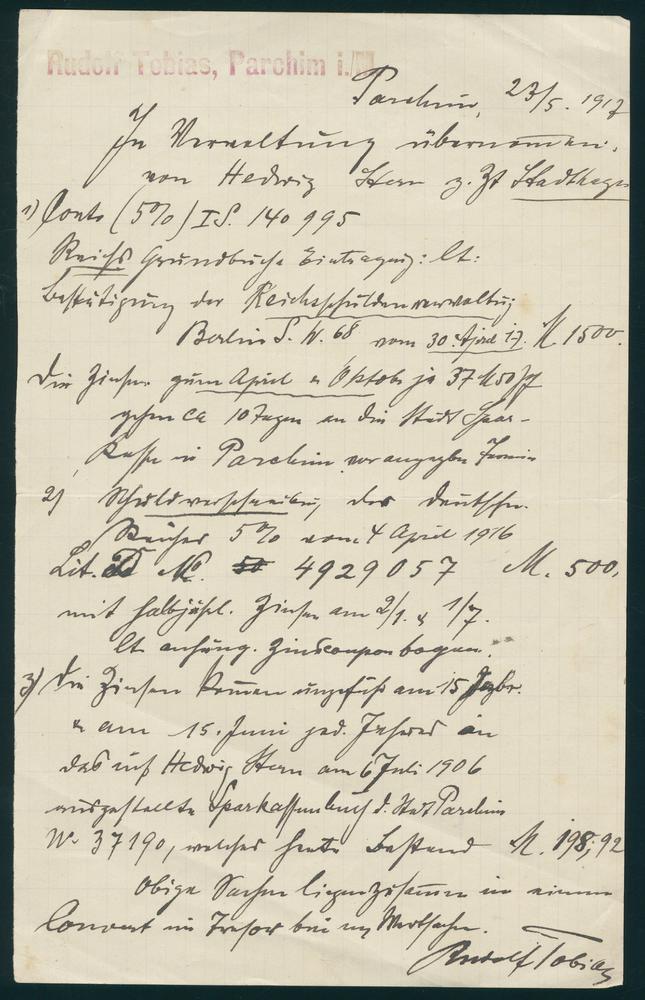 Rudolf Tobias, Parchim i./M
Parchim, 23/5. 1917
In Verwaltung übernommen.
von Hedwig Stern z. Zt Stadthagen
1) Conto (5%) I S. 140995
Reichs Grundbuche Eintragung: lt:
Bestätigung der Reichsschuldenverwaltung
Berlin S. W. 68 vom 30. April 17. M. 1500.
Die Zinsen zum April u Oktob je 37 M 50 Pf
gehen ca 10 Tagen an die Stadt Spar-
Kasse in Parchim vor angegeben Termin
2) Schuldverschreibung des deutschen
Reiches 5% vom 4 April 1916
Lit. D No. 4929057 M. 500.
mit halbjähl. Zinsen am 2/1. & 1/7.
lt anhäng. Zinscouponbogen.
3) Die Zinsen kommen ungefähr am 15 Dezbr.
u am 15. Juni jed. Jahres in
das auf Hedwig Stern am 6 Juli 1906
ausgestellte Sparkassenbuch d. Stadt Parchim
No 37190, welches heute Bestand M. 198,92
Obige Sachen liegen zusammen in einem
Convert im Tresor bei mg Wertsachen.
Rudolf Tobias